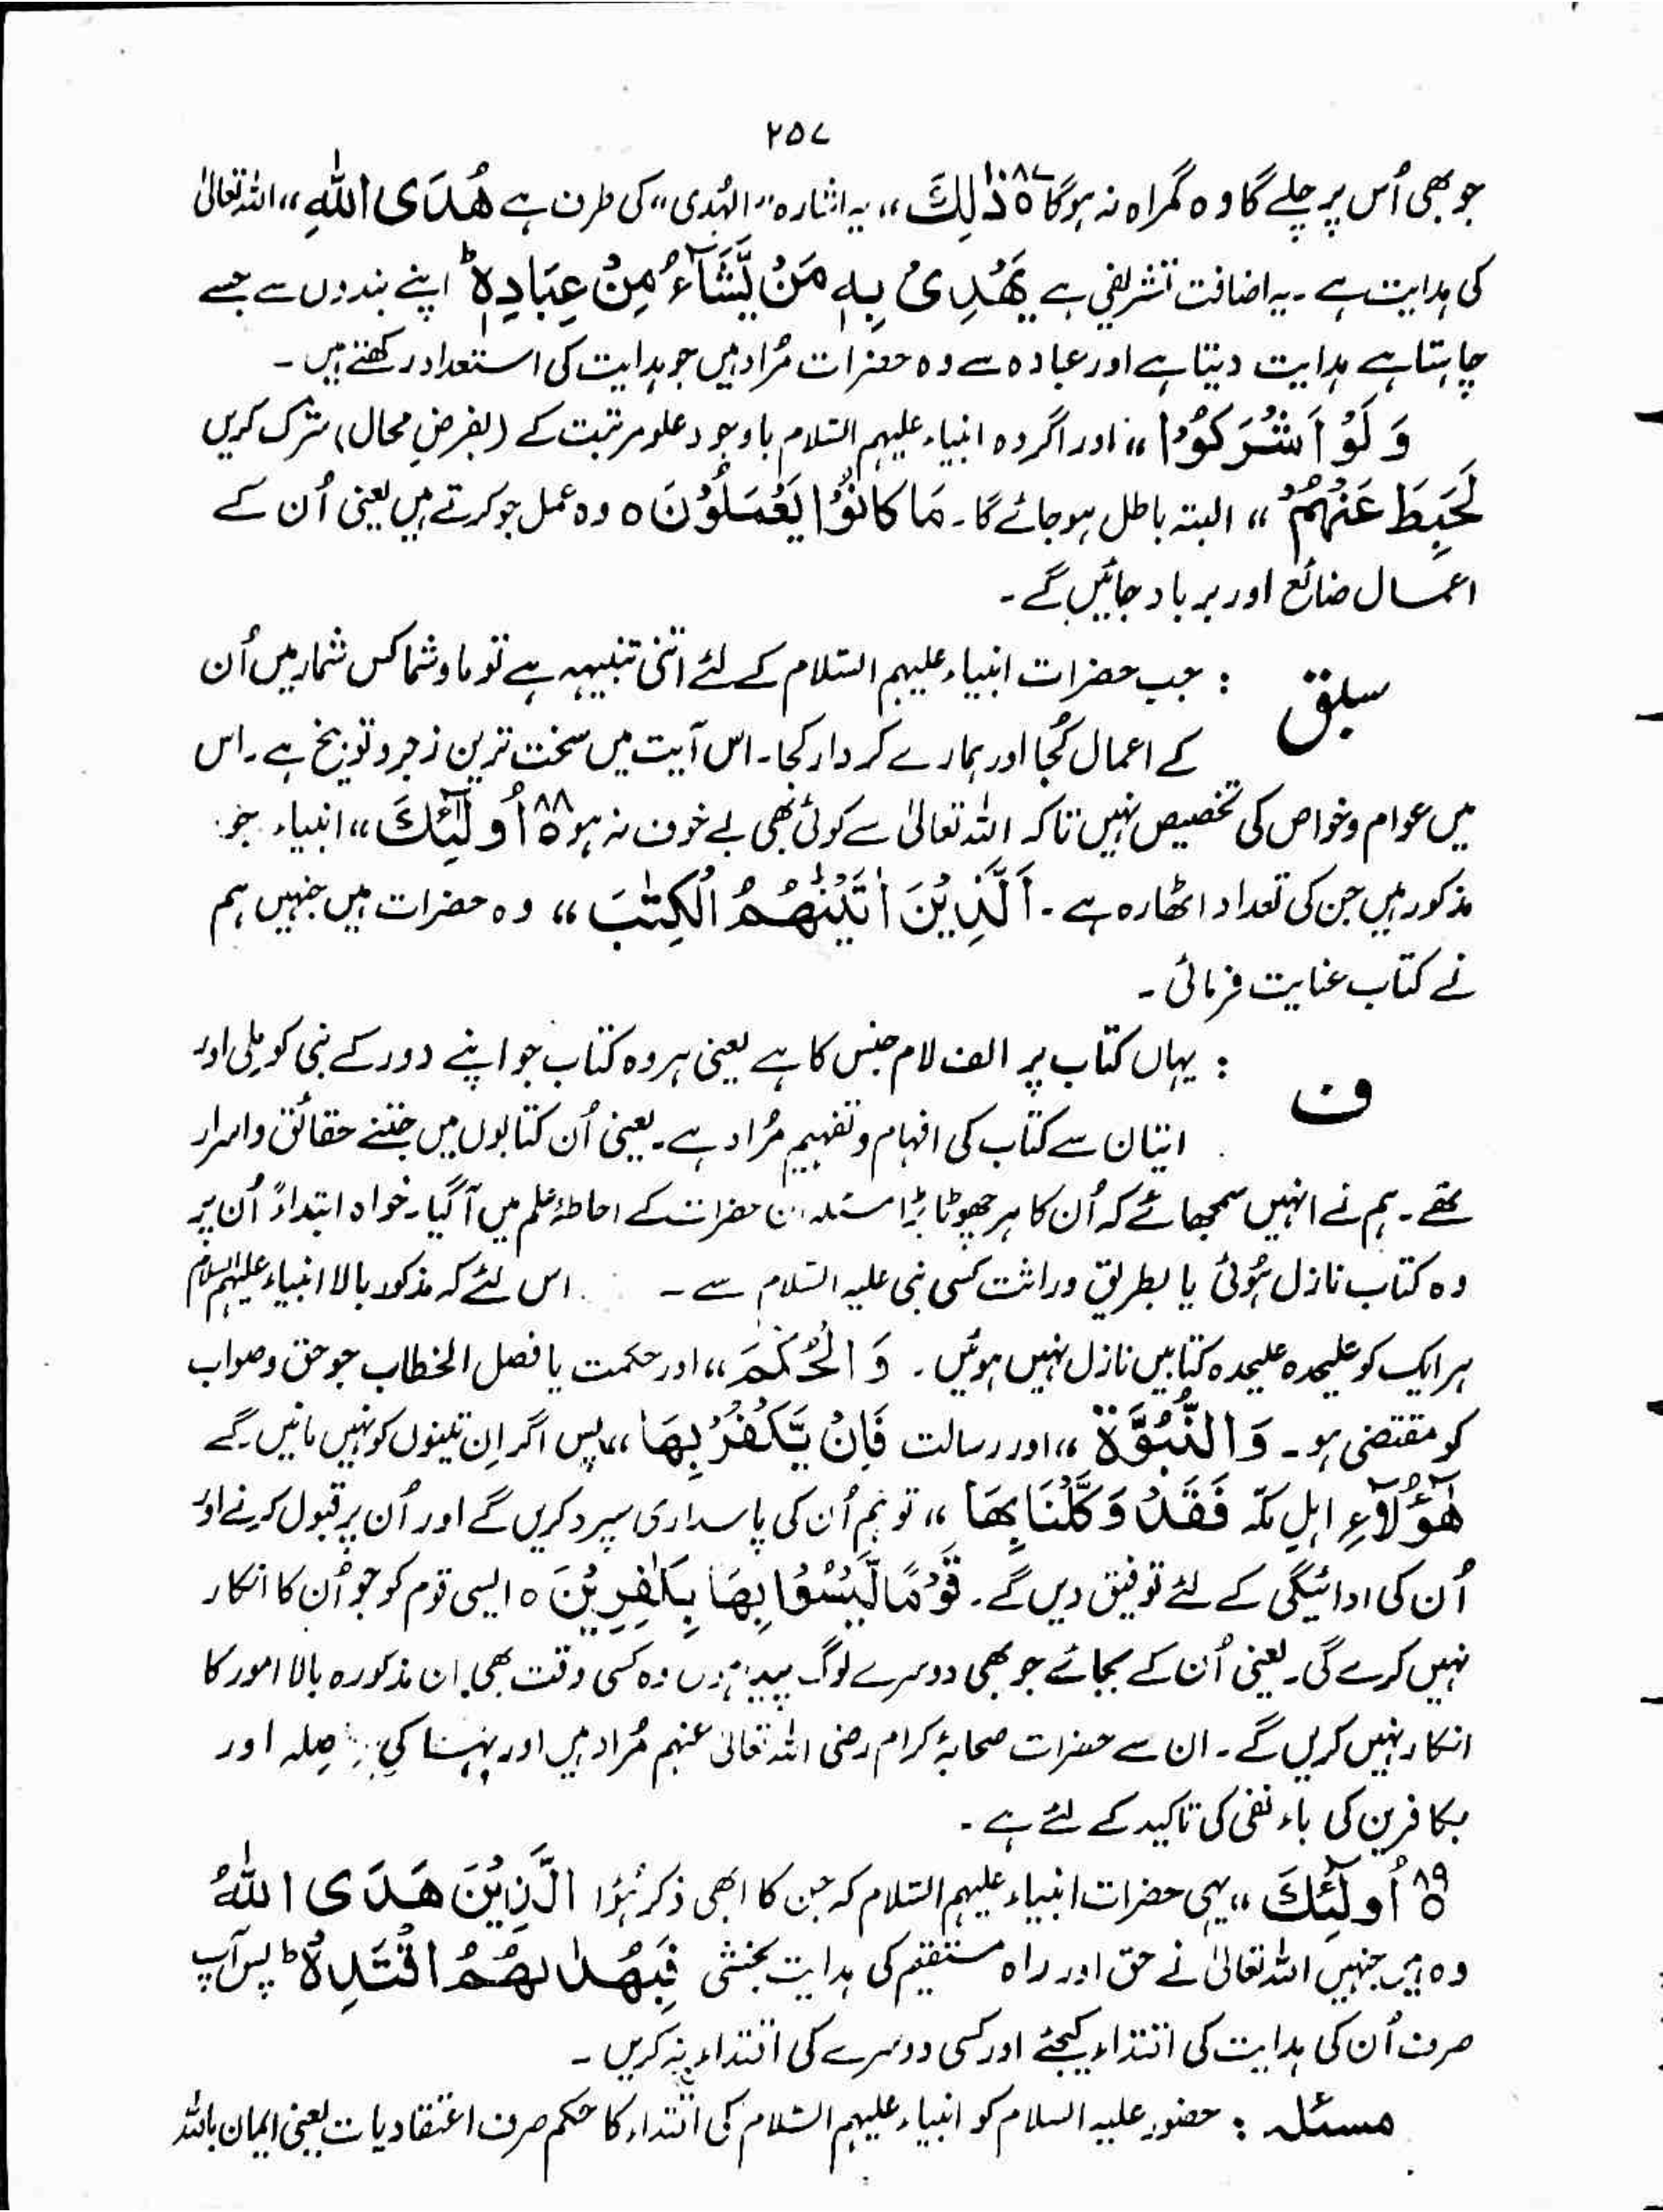 ۲۵۷
جو بھی اُس پر چلے گا وہ گمراہ نہ ہوگا ٥ ذٰلِكَ ،، یہ اشارہ ”الہُدی“ کی طرف ہے هُدَى اللّٰهِ ،، اللہ تعالیٰ
کی ہدایت ہے ۔ یہ اضافت تشریفی ہے يَهْدِىْ بِهٖ مَنْ يَّشَآءُ مِنْ عِبَادِهٖ ؕ اپنے بندوں سے جسے
چاہتا ہے ہدایت دیتا ہے اور عبادہ سے وہ حضرات مُراد ہیں جو ہدایت کی استعداد رکھتے ہیں ۔
وَ لَوْ اَشْرَكُوْا ،، اور اگر وہ انبیاء علیہم السّلام باوجود علو مرتبت کے (بفرضِ محال) شرک کریں
لَحَبِطَ عَنْهُمْ ،، البتہ باطل ہو جائے گا ۔ مَا كَانُوْا يَعْمَلُوْنَ ٥ وہ عمل جو کرتے ہیں یعنی اُن کے
اعمال ضائع اور برباد جائیں گے ۔
سبق : جب حضرات انبیاء علیہم السّلام کے لئے اتنی تنبیہہ ہے تو ما و شما کس شمار میں اُن
کے اعمال کُجا اور ہمارے کردار کجا ۔ اس آیت میں سخت ترین زجر و توبیخ ہے ۔ اس
میں عوام و خواص کی تخصیص نہیں تاکہ اللہ تعالیٰ سے کوئی بھی بے خوف نہ ہو ٥٨٨ اُولٰٓئِكَ ،، انبیاء جو
مذکور ہیں جن کی تعداد اٹھارہ ہے ۔ اَلَّذِيْنَ اٰتَيْنٰهُمُ الْكِتٰبَ ،، وہ حضرات ہیں جنہیں ہم
نے کتاب عنایت فرمائی ۔
ف : یہاں کتاب پر الف لام جنس کا ہے یعنی ہر وہ کتاب جو اپنے دور کے نبی کو ملی اور
ایتان سے کتاب کی افہام و تفہیم مُراد ہے ۔ یعنی اُن کتابوں میں جتنے حقائق و اسرار
تھے ۔ ہم نے انہیں سمجھائے کہ اُن کا ہر چھوٹا بڑا مسئلہ ان حضرات کے احاطۂ علم میں آگیا ۔ خواہ ابتداءً اُن پر
وہ کتاب نازل ہُوئی یا بطریق وراثت کسی نبی علیہ السّلام سے ۔ اس لئے کہ مذکور بالا انبیاء علیہم السلام
ہر ایک کو علیحدہ علیحدہ کتابیں نازل نہیں ہوئیں ۔ وَ الْحُكْمَ ،، اور حکمت یا فصل الخطاب جو حق و صواب
کو مقتضی ہو ۔ وَالنُّبُوَّةَ ،، اور رسالت فَاِنْ يَّكْفُرْ بِهَا ،، پس اگر اِن تینوں کو نہیں مانیں گے
هٰٓؤُلَآءِ اہلِ مکّہ فَقَدْ وَكَّلْنَا بِهَا ،، تو ہم اُن کی پاسداری سپرد کریں گے اور اُن پر قبول کرنے اور
اُن کی ادائیگی کے لئے توفیق دیں گے ۔ قَوْمًا لَّيْسُوْا بِهَا بِكٰفِرِيْنَ ٥ ایسی قوم کو جو اُن کا انکار
نہیں کرے گی ۔ یعنی اُن کے بجائے جو بھی دوسرے لوگ پیدا ہوں وہ کسی وقت بھی ان مذکورہ بالا امور کا
انکار نہیں کریں گے ۔ ان سے حضرات صحابۂ کرام رضی اللہ تعالیٰ عنہم مُراد ہیں اور بہا کی صِلہ اور
بکافرین کی باء نفی کی تاکید کے لئے ہے ۔
٥٨٩ اُولٰٓئِكَ ،، یہی حضرات انبیاء علیہم السّلام کہ جن کا ابھی ذکر ہُوا الَّذِيْنَ هَدَى اللّٰهُ
وہ ہیں جنہیں اللہ تعالیٰ نے حق اور راہ مستقیم کی ہدایت بخشی فَبِهُدٰىهُمُ اقْتَدِهْ ؕ پس آپ
صرف اُن کی ہدایت کی اقتداء کیجئے اور کسی دوسرے کی اقتداء نہ کریں ۔
مسئلہ : حضور علیہ السلام کو انبیاء علیہم السّلام کی اقتداء کا حکم صرف اعتقادیات یعنی ایمان باللہ